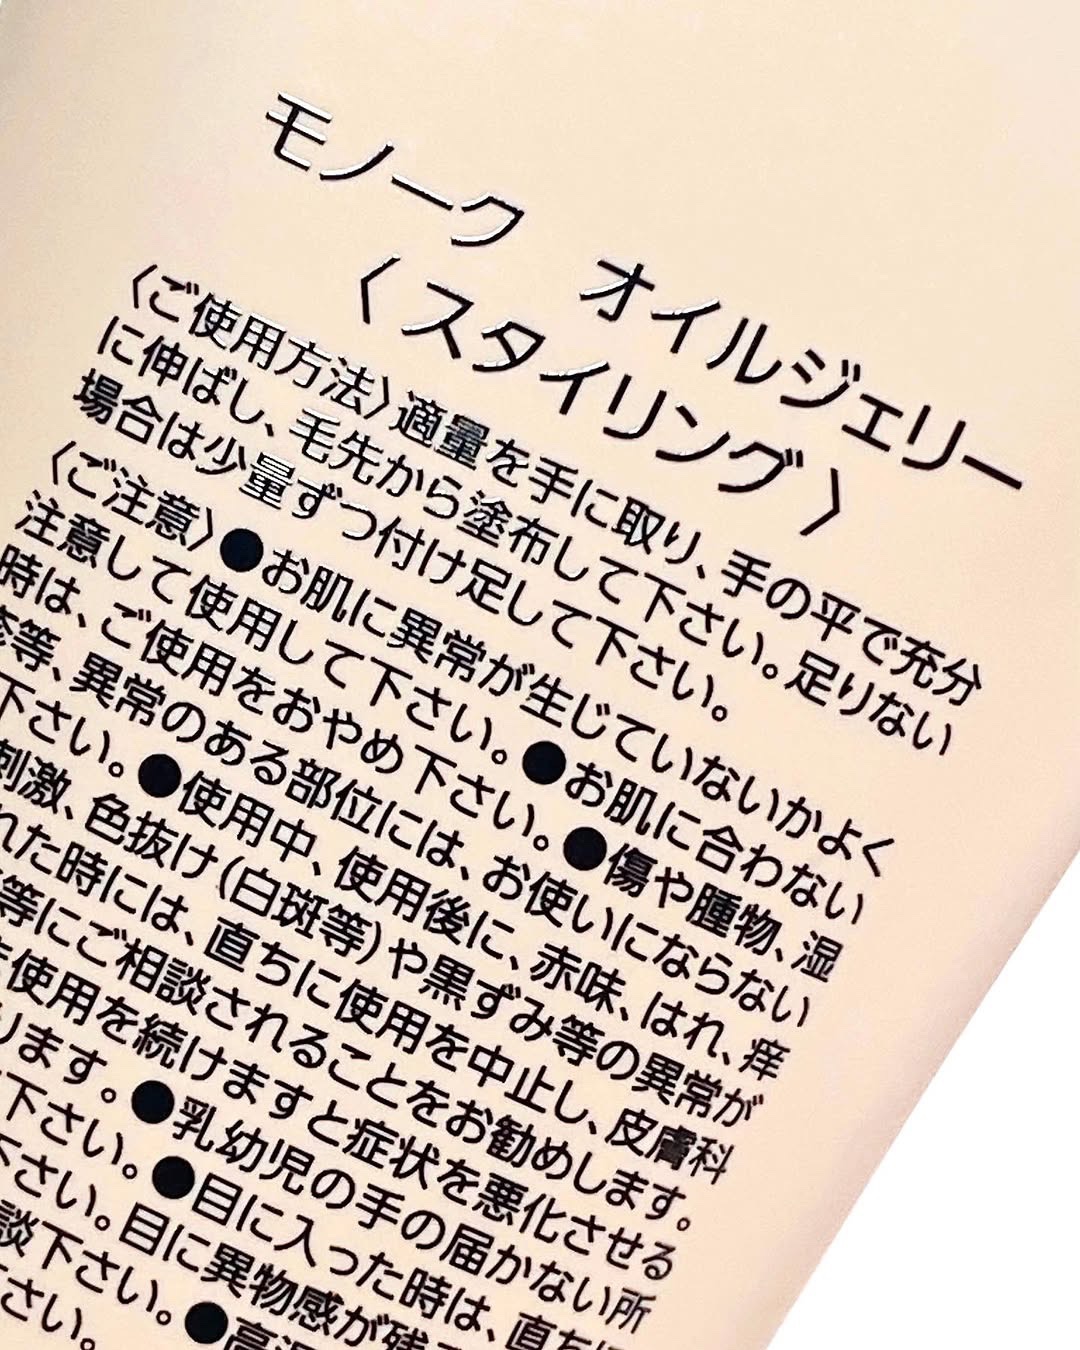 モノーク　オイルジェリー
〈スタイリング〉
〈ご使用方法〉適量を手に取り、手の平で充分
に伸ばし、毛先から塗布して下さい。足りない
場合は少量ずつ付け足して下さい。
〈ご注意〉●お肌に異常が生じていないかよく
注意して使用して下さい。●お肌に合わない
時は、ご使用をおやめ下さい。●傷や腫物、湿
疹等、異常のある部位には、お使いにならない
下さい。●使用中、使用後に、赤味、はれ、痒
刺激、色抜け(白斑等)や黒ずみ等の異常が
れた時には、直ちに使用を中止し、皮膚科
等にご相談されることをお勧めします。
使用を続けますと症状を悪化させる
ります。●乳幼児の手の届かない所
下さい。●目に入った時は、直ち
下さい。目に異物感が残
談下さい。●高温
さい。